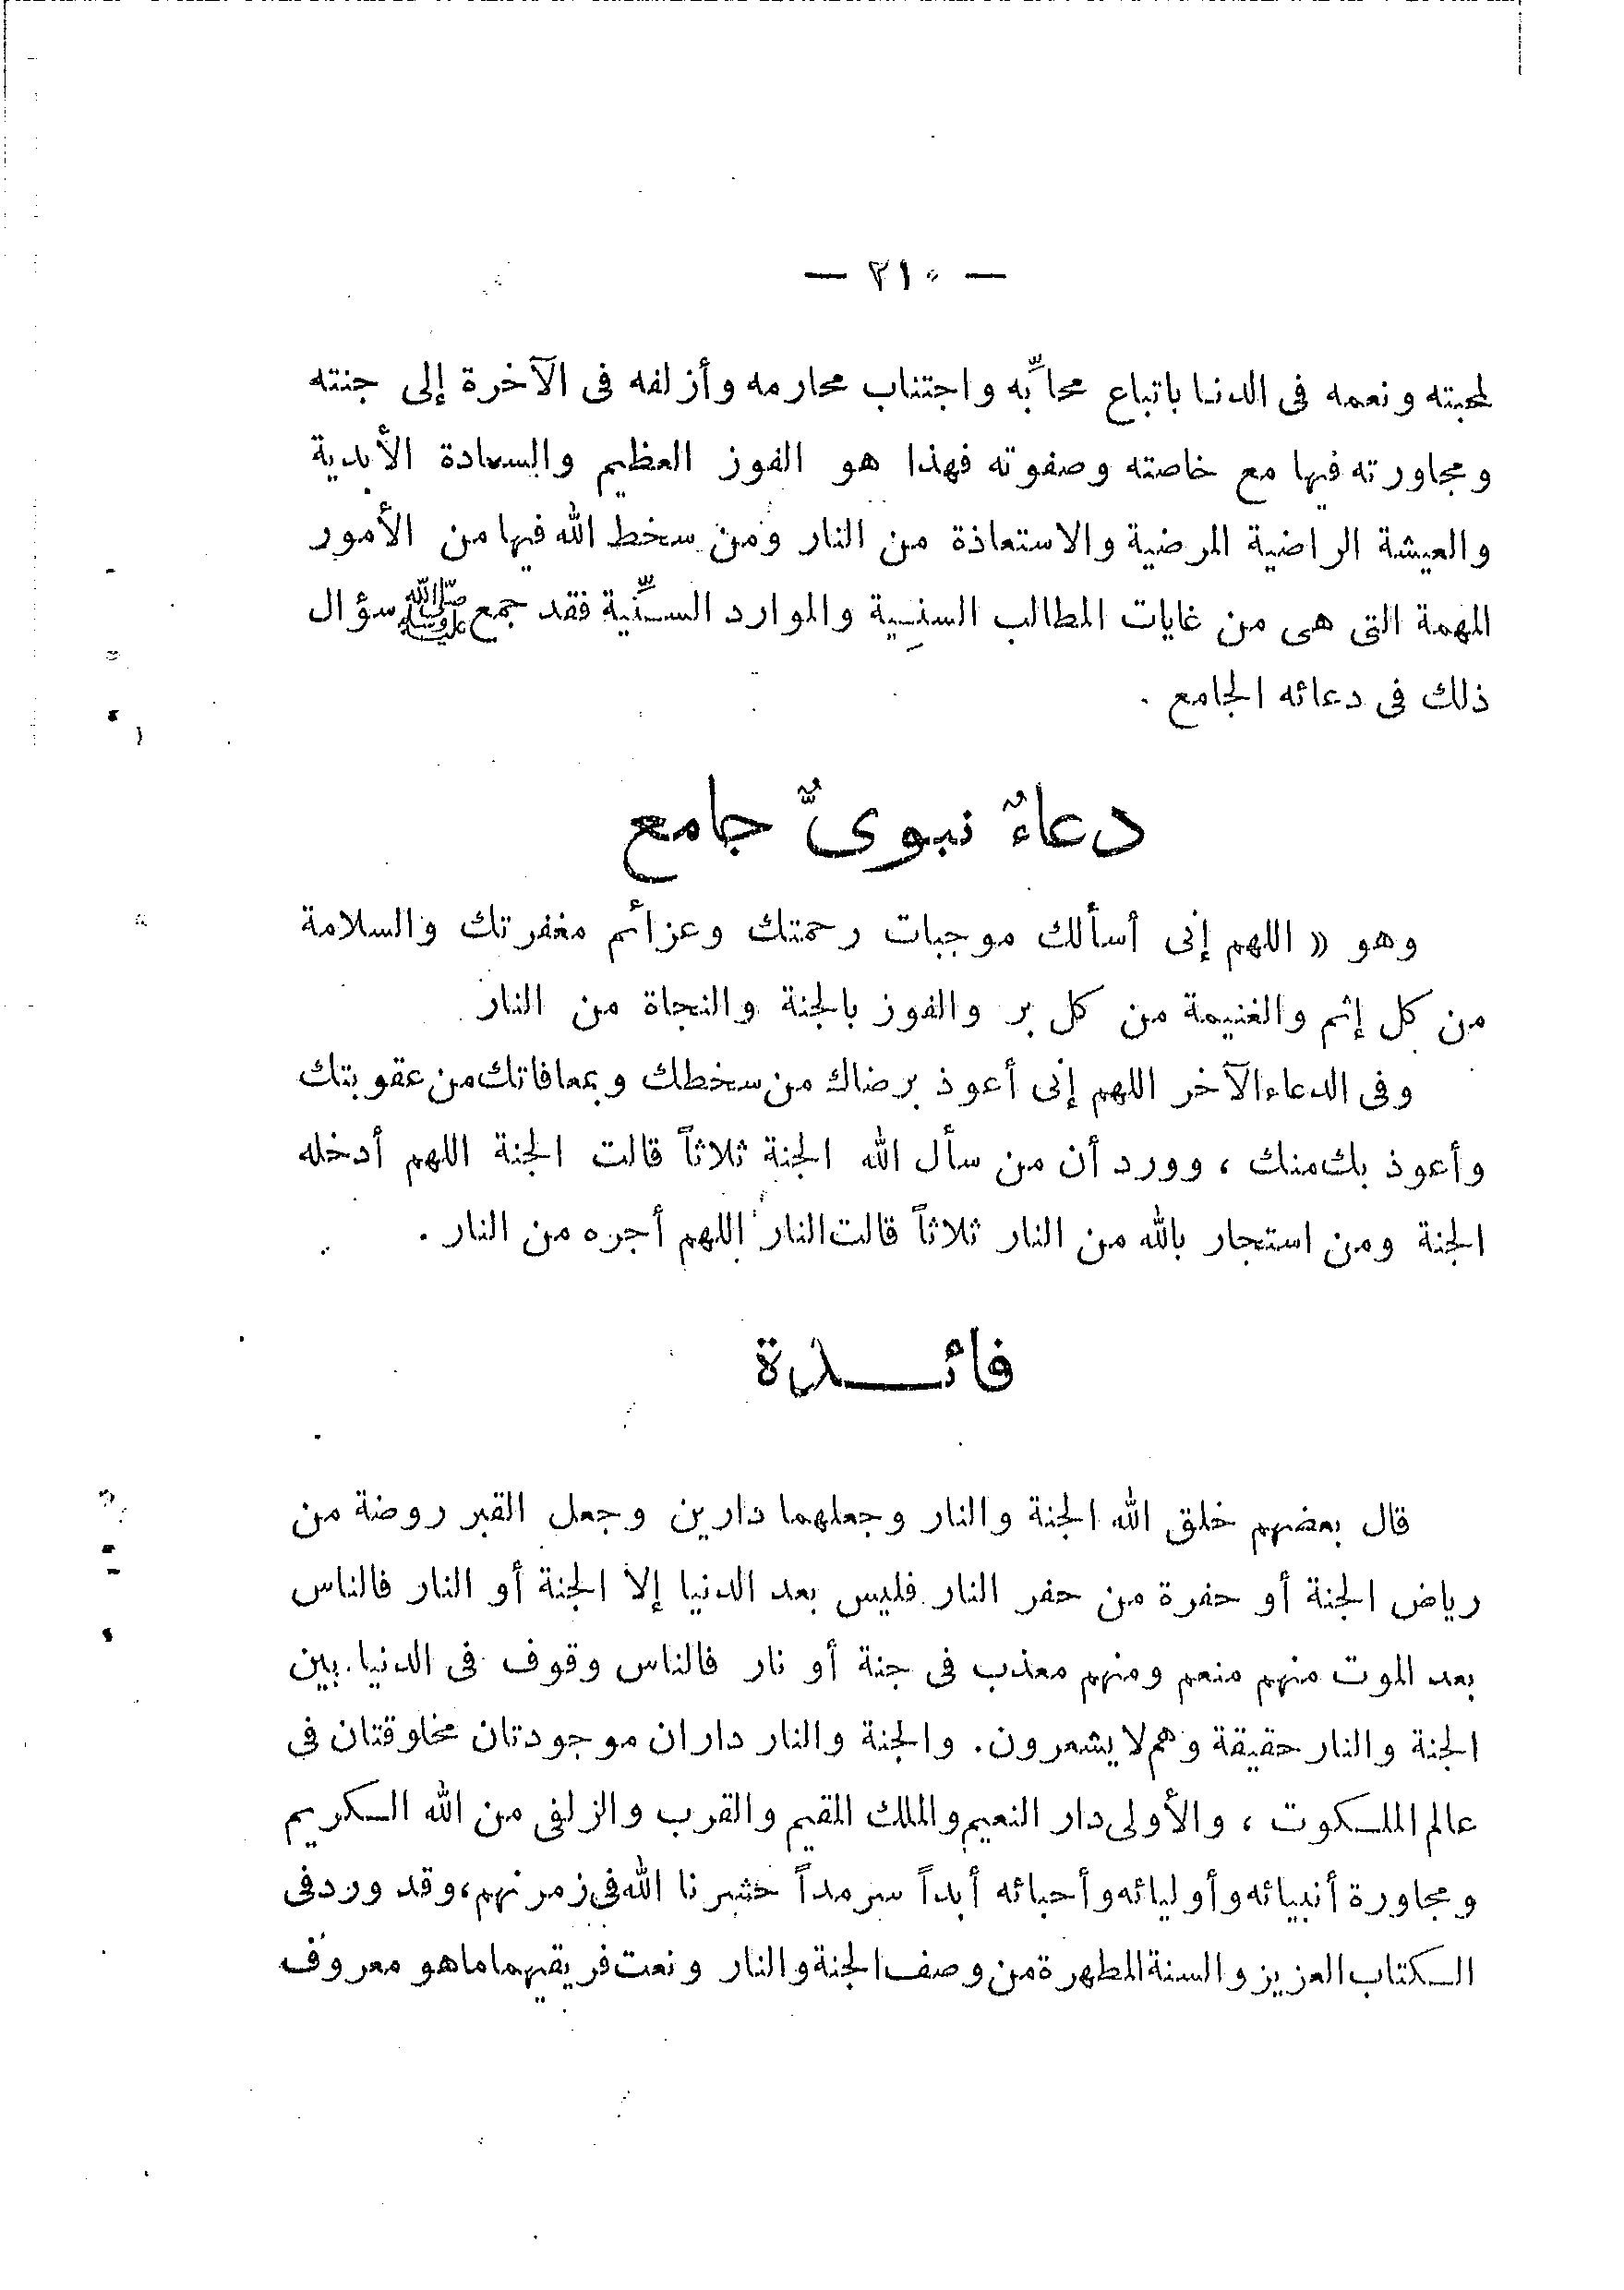 — ٢١٠ —
لمحبته ونعمه فى الدنا باتباع محابِّه واجتناب محارمه وأزلفه فى الآخرة إلى جنته
ومجاورته فيها مع خاصته وصفوته فهذا هو الفوز العظيم والسعادة الأبدية
والعيشة الراضية المرضية والاستعاذة من النار ومن سخط الله فيها من الأمور
المهمة التى هى من غايات المطالب السنِية والموارد السنِّية فقد جمع ﷺ سؤال
ذلك فى دعائه الجامع .
دعاءٌ نبوىٌّ جامع
وهو « اللهم إنى أسألك موجبات رحمتك وعزائم مغفرتك والسلامة
من كل إثم والغنيمة من كل بر والفوز بالجنة والنجاة من النار
وفى الدعاء الآخر اللهم إنى أعوذ برضاك من سخطك وبمعافاتك من عقوبتك
وأعوذ بك منك ، وورد أن من سأل الله الجنة ثلاثاً قالت الجنة اللهم أدخله
الجنة ومن استجار بالله من النار ثلاثاً قالت النار اللهم أجره من النار .
فائـــدة
قال بعضهم خلق الله الجنة والنار وجعلهما دارين وجعل القبر روضة من
رياض الجنة أو حفرة من حفر النار فليس بعد الدنيا إلا الجنة أو النار فالناس
بعد الموت منهم منعم ومنهم معذب فى جنة أو نار فالناس وقوف فى الدنيا بين
الجنة والنار حقيقة وهم لا يشعرون. والجنة والنار داران موجودتان مخلوقتان فى
عالم الملكوت ، والأولى دار النعيم والملك المقيم والقرب والزلفى من الله الكريم
ومجاورة أنبيائه وأوليائه وأحبائه أبداً سرمداً حشرنا الله فى زمرتهم، وقد ورد فى
الكتاب العزيز والسنة المطهرة من وصف الجنة والنار ونعت فريقيهما ما هو معروف